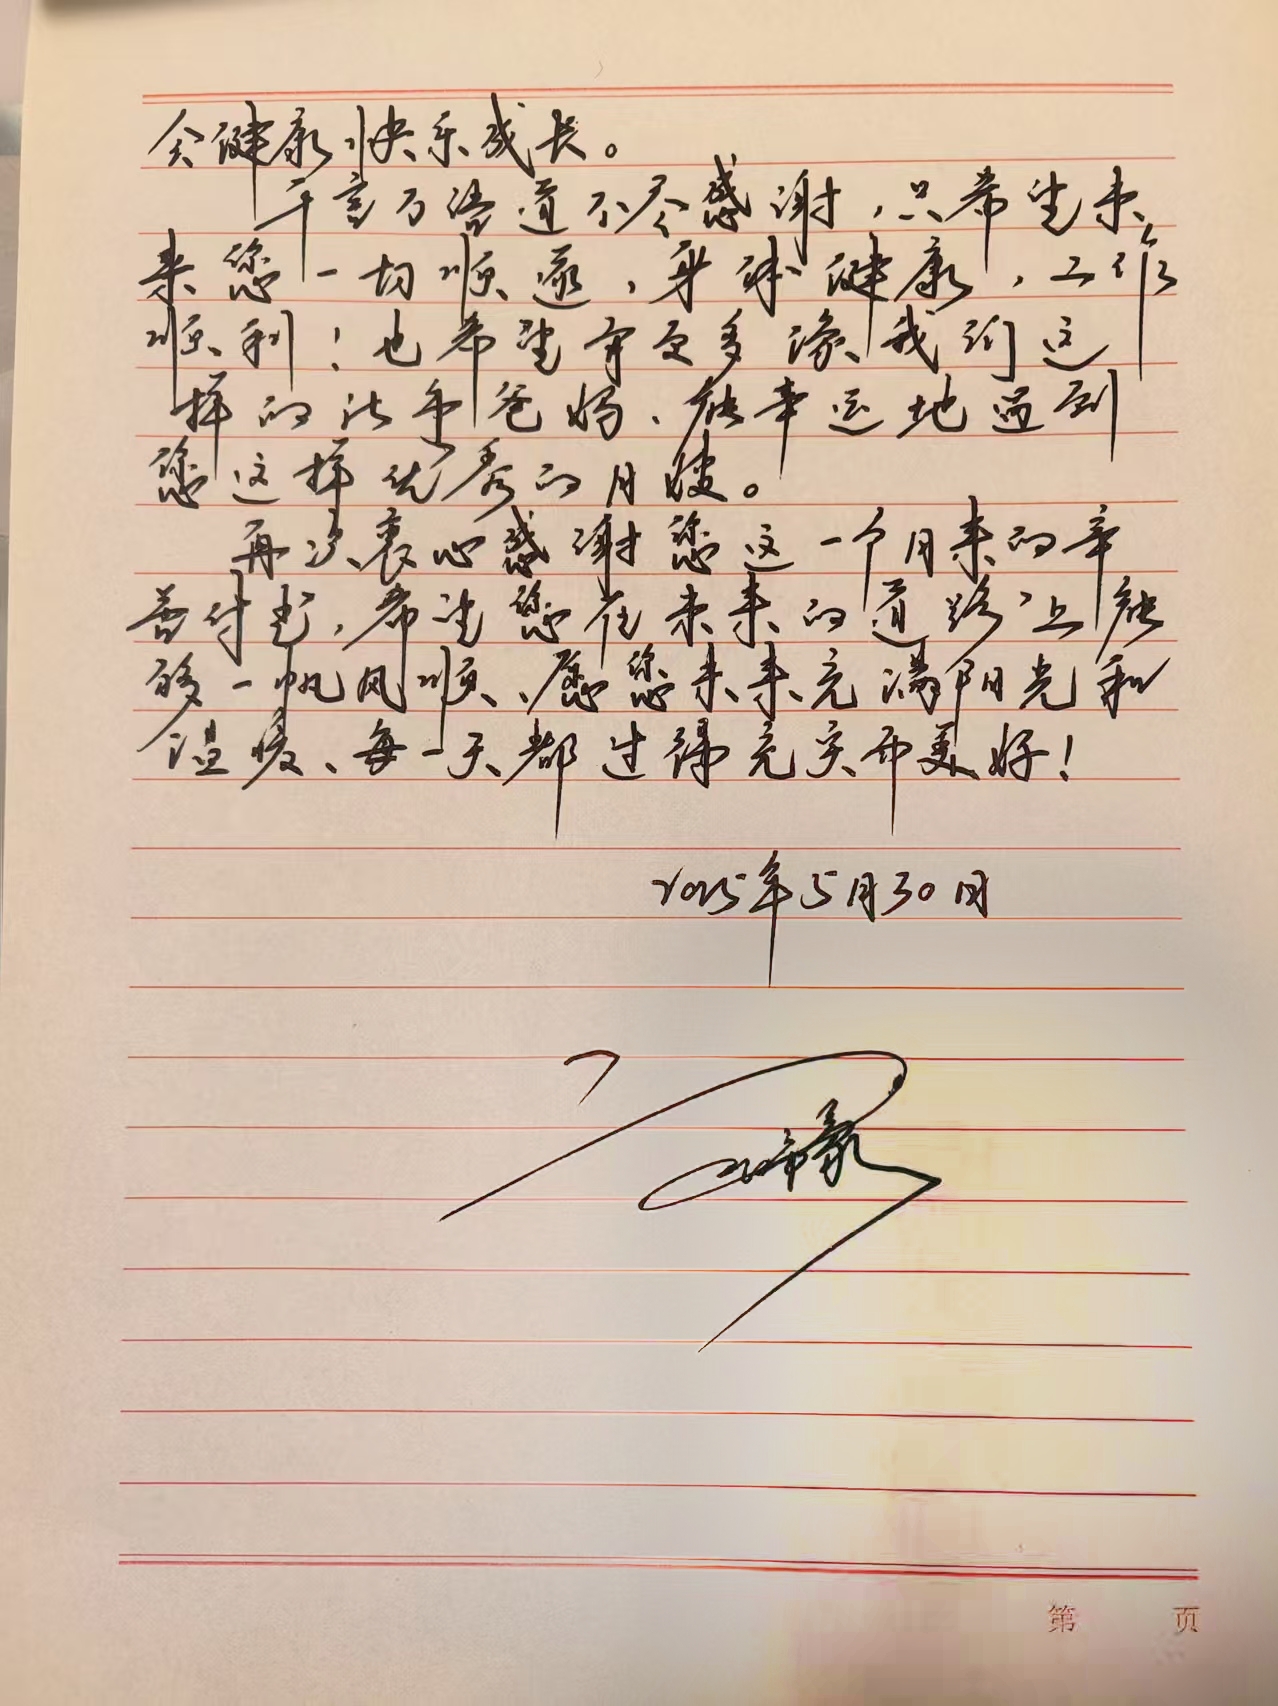 会健康快乐成长。
千言万语道不尽感谢，只希望未
来您一切顺遂，身体健康，工作
顺利！也希望有更多像我们这
样的新手爸妈、能幸运地遇到
您这样优秀的月嫂。
再次衷心感谢您这一个月来的辛
苦付出，希望您在未来的道路上能
够一帆风顺、愿您未来充满阳光和
温暖、每一天都过得充实而美好！
2025年5月30日
第 页